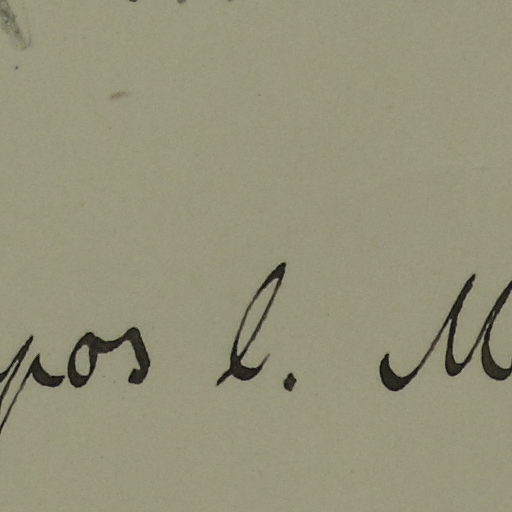 pos l. M